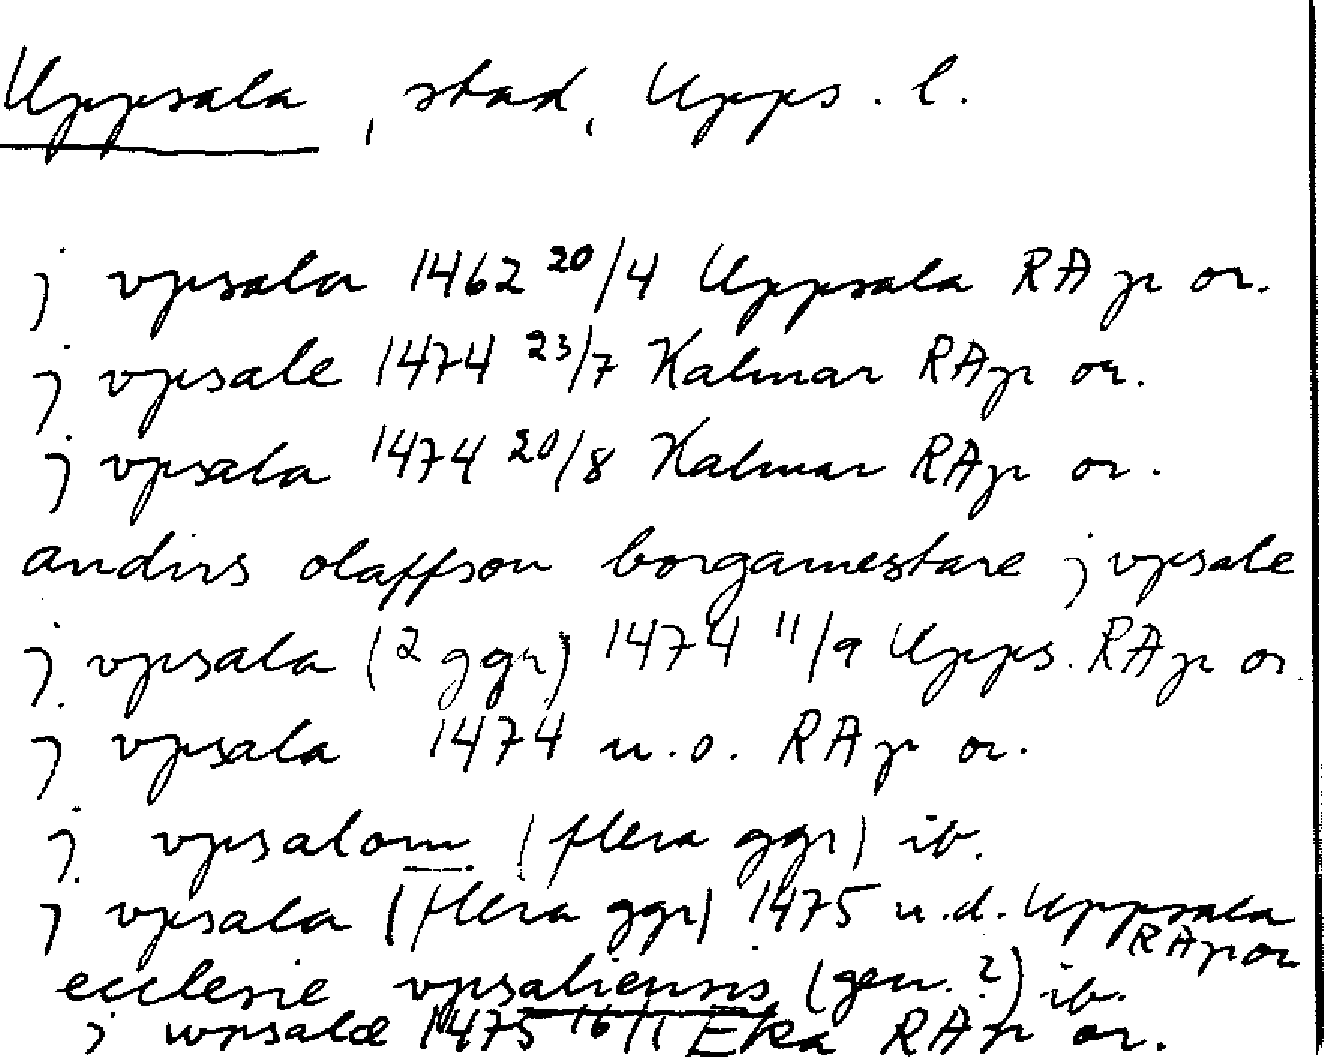 Uppsala, stad, Upps. l.
j vpsala 1462 20/4 Uppsala RAp or.
j vpsale 1474 23/7 Kalmar RAp or.
j vpsala 1474 20/8 Kalmar RAp or.
andirs olaffson borgamestare j vpsale
j vpsala (2 ggr) 1474 11/9 Upps. RAp or
j vpsala 1474 u.o. RAp or.
j vpsalom (flera ggr) ib.
j vpsala (flera ggr) 1475 u.d. Uppsala
RAp or
ecclesie vpsaliensis (gen.?) ib.
j wpsale 1475 16/11 Eka RAp or.